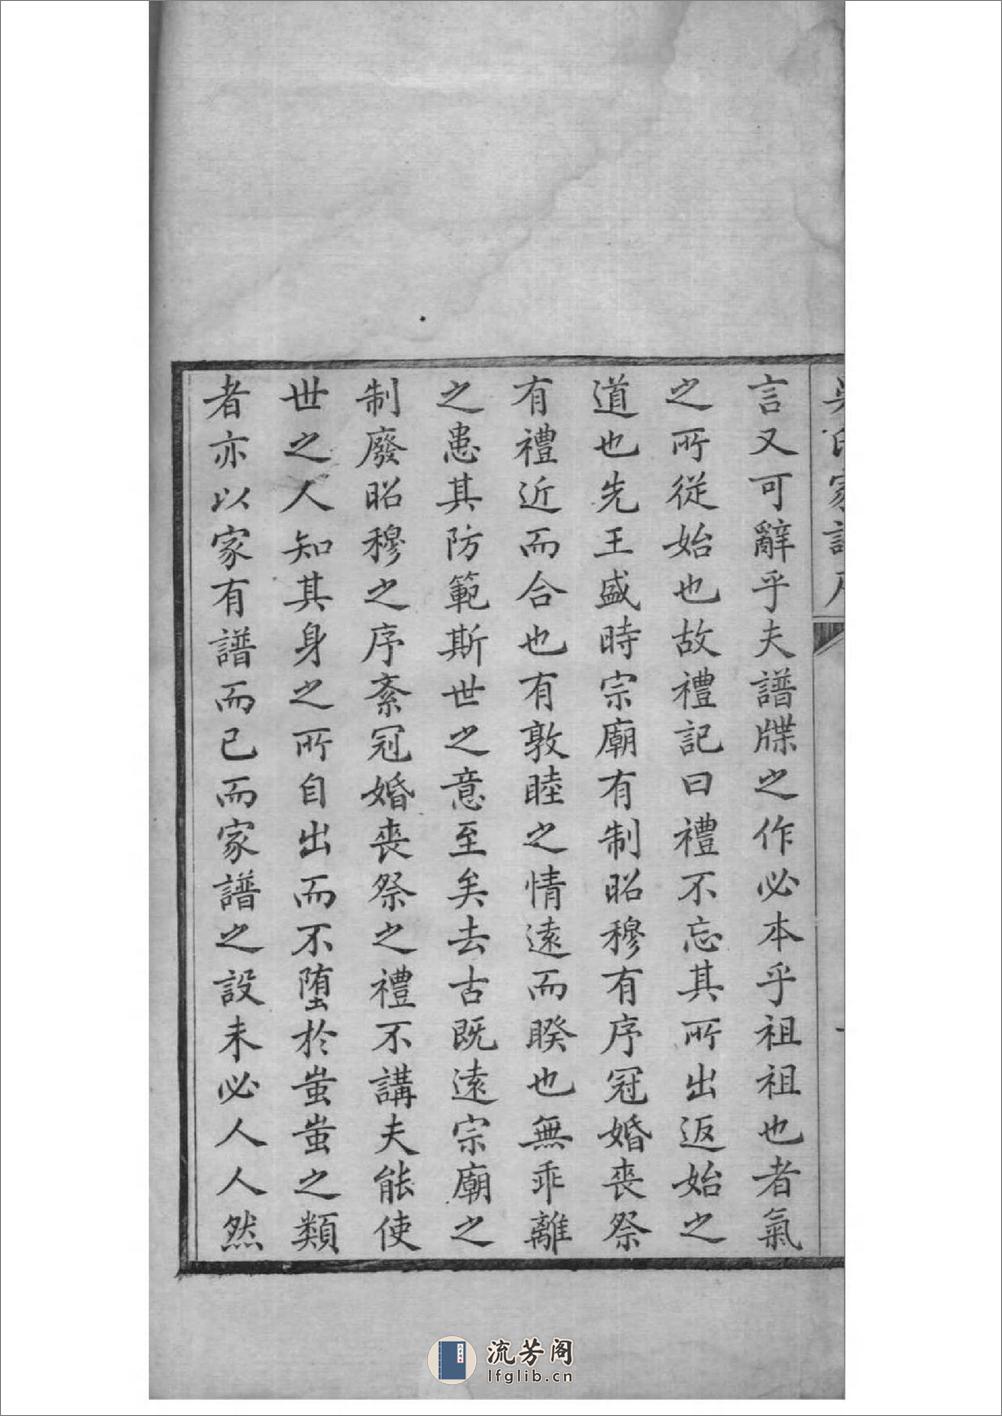 吳氏家譜序
言又可辭乎夫譜牒之作必本乎祖祖也者氣
之所從始也故禮記曰禮不忘其所出返始之
道也先王盛時宗廟有制昭穆有序冠婚喪祭
有禮近而合也有敦睦之情遠而睽也無乖離
之患其防範斯世之意至矣去古既遠宗廟之
制廢昭穆之序紊冠婚喪祭之禮不講夫能使
世之人知其身之所自出而不墮於蚩蚩之類
者亦以家有譜而已而家譜之設未必人人然
流芳阁
lfglib.cn